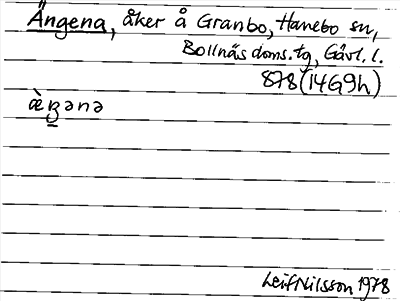 Ängena, åker å Granbo, Hanebo sn,
Bollnäs doms. tg, Gävl. l.
878 (14G9h)
æ̀ŋ̠ənə
Leif Nilsson 1978